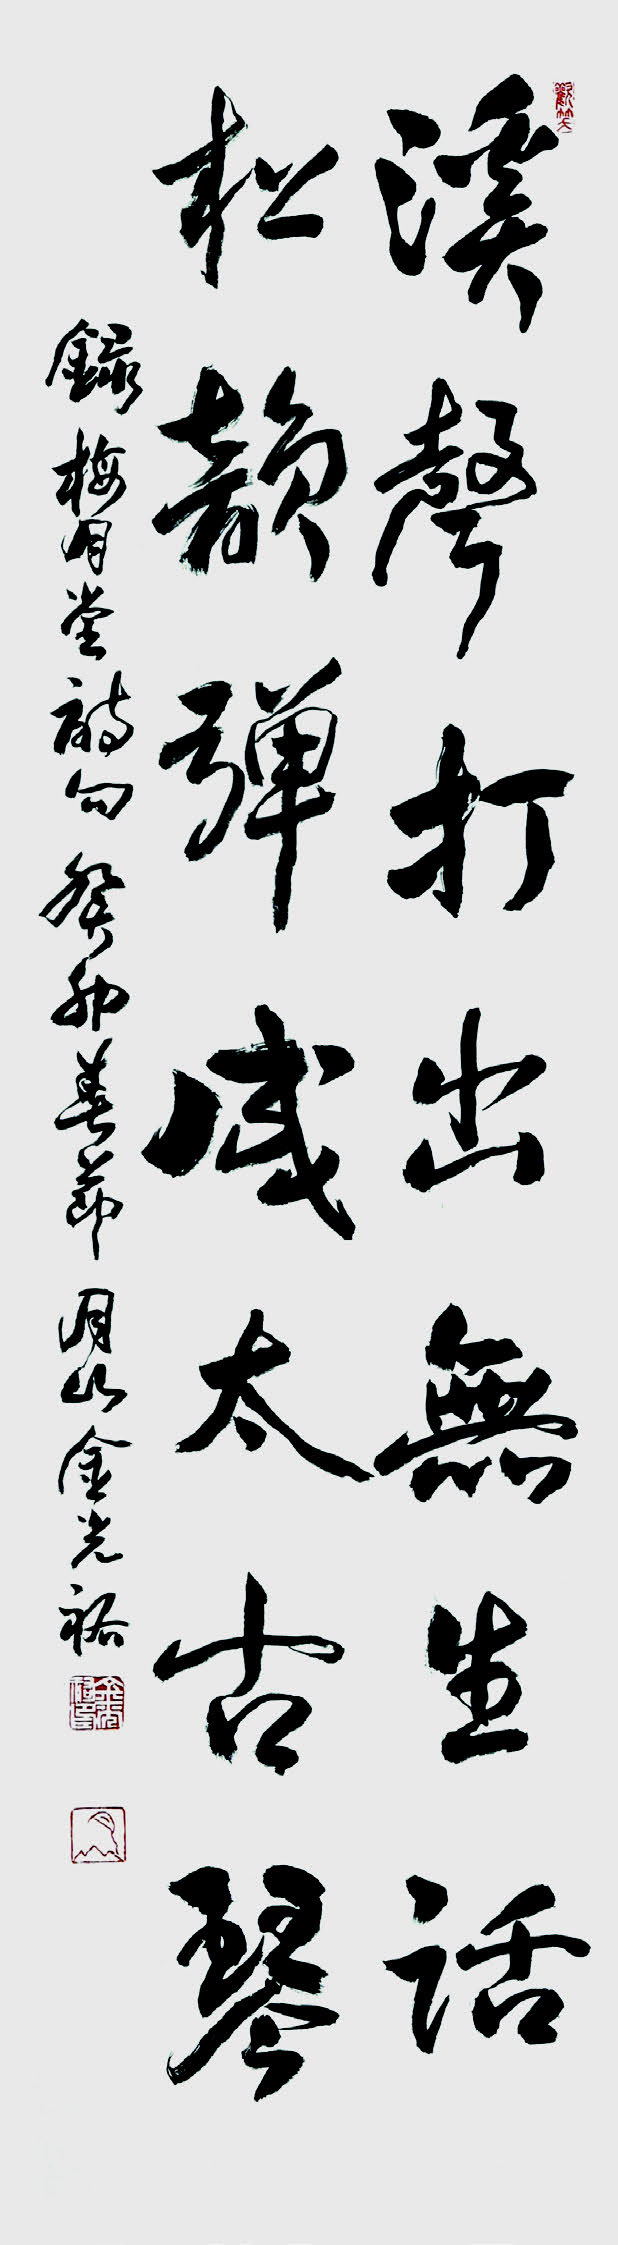 溪聲打出無生話
松韻彈成太古琴
錄梅月堂詩句 癸卯春節 月山 金光裕